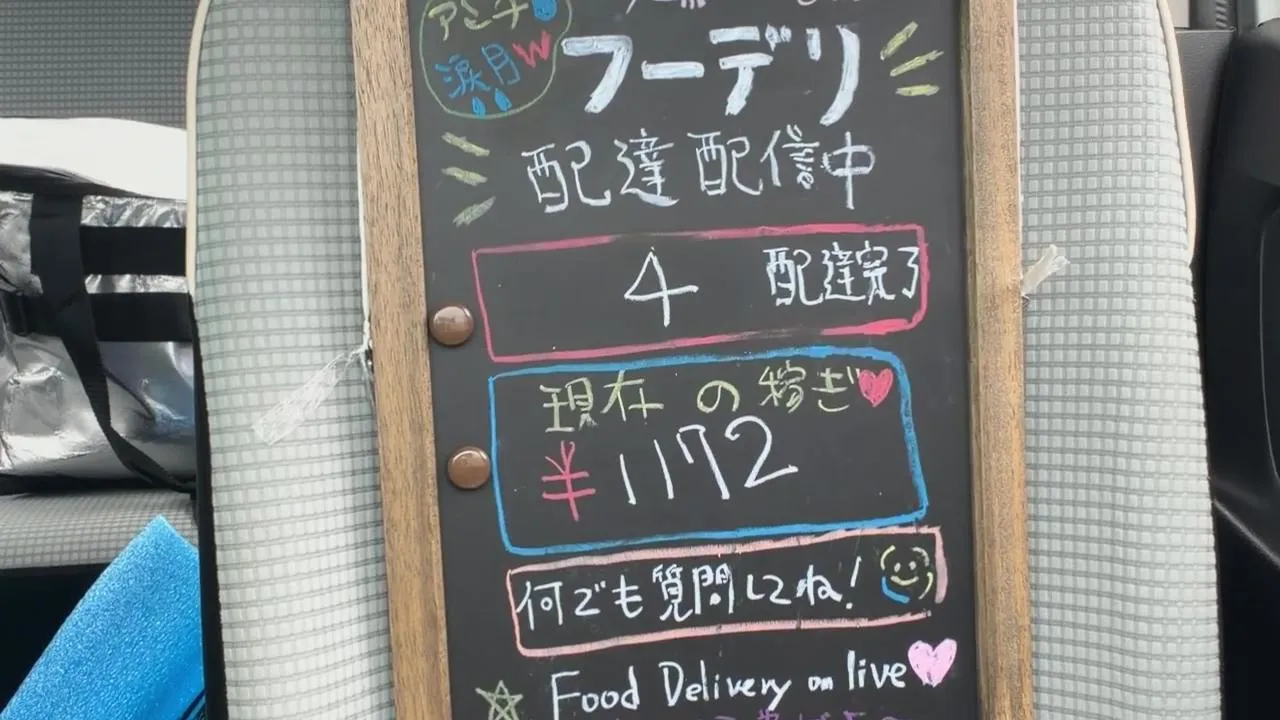 アンチ
涙月W
フーデリ
配達配信中
4 配達完了
現在の稼ぎ
¥1172
何でも質問してね!
Food Delivery on live